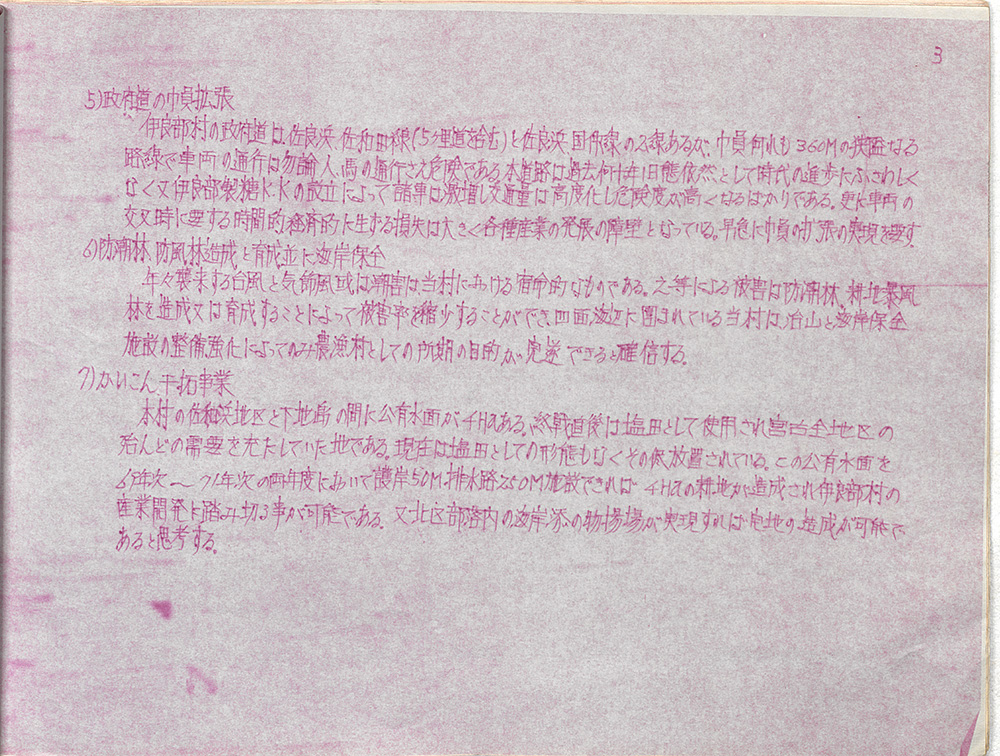 3
5)政府道の巾員拡張
伊良部村の政府道は佐良浜、佐和田線(5ヶ里道を含む)と佐良浜、国仲線の2線あるが、巾員何れも3.60Mの狭隘なる
路線で車両の通行は勿論人、馬の通行さえ危険である。本道路は過去何十年旧態依然として時代の進歩にふさわしく
なく又伊良部製糖K.Kの設立によって諸車は激増し交通量は高度化し危険度が高くなるばかりである。更に車両の
交叉時に要する時間的経済的に生ずる損失は大きく各種産業の発展の障壁となっている。早急に巾員の拡張の実現を要す。
6)防潮林、防風林造成と育成並に海岸保全
年々襲来する台風と気節風或は潮害は当村における宿命的なものである。之等による被害は防潮林、耕地暴風
林を造成又は育成することによって被害率を縮少することができ、四面海に囲まれている当村は治山と海岸保全
施設の整備、強化によってのみ農漁村としての所期の目的が完遂できると確信する。
7)かいこん、干拓事業
本村の佐和浜地区と下地島の間に公有水面が4Haある。終戦直後は塩田として使用され宮古全地区の
殆んどの需要を充たしていた地である。現在は塩田としての形態もなくその侭放置されている。この公有水面を
69年次〜71年次の両年度において護岸50M、排水路250M施設できれば4Haの耕地が造成され伊良部村の
産業開発に踏み切る事が可能である。又北区部落内の海岸添の物揚場が実現すれば宅地の造成が可能で
あると思考する。